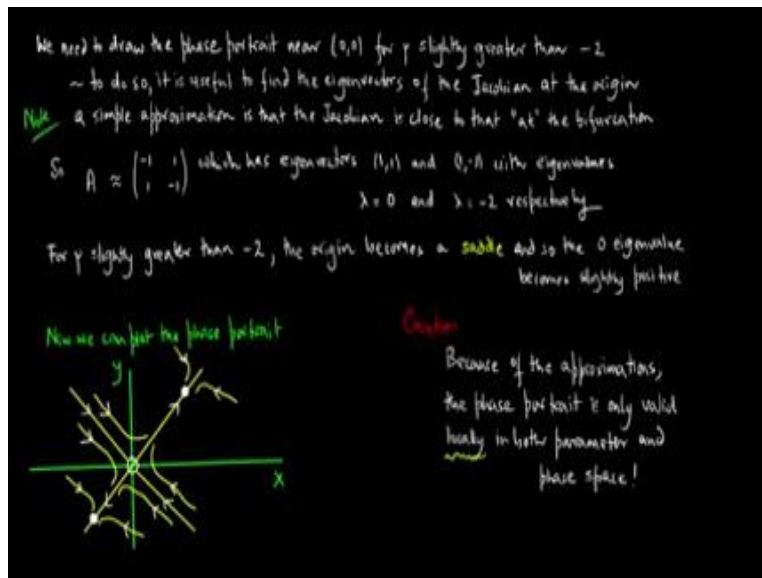 We need to draw the phase portrait near (0,0) for μ slightly greater than -2
~ to do so, it is useful to find the eigenvectors of the Jacobian at the origin
Note a simple approximation is that the Jacobian is close to that "at" the bifurcation
So A ≈ (-1 1; 1 -1) which has eigenvectors (1,1) and (1,-1) with eigenvalues
λ = 0 and λ = -2 respectively
For μ slightly greater than -2, the origin becomes a saddle and so the 0 eigenvalue
becomes slightly positive
Now we can plot the phase portrait
Caution
y
x
Because of the approximations,
the phase portrait is only valid
locally in both parameter and
phase space!